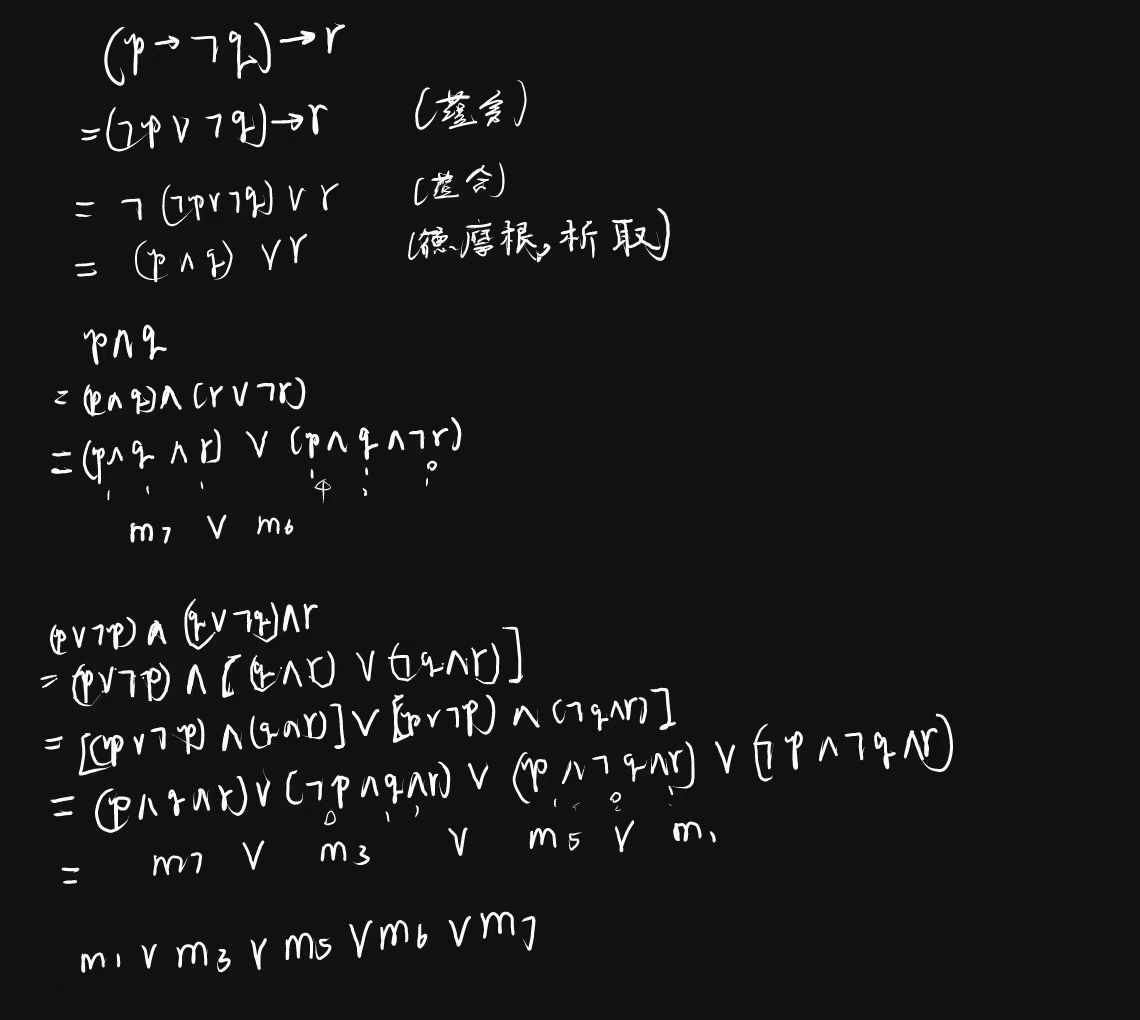 (p→¬q)→r
=(¬p∨¬q)→r (蕴含)
= ¬(¬p∨¬q)∨r (蕴含)
= (p∧q)∨r (德摩根,析取)
p∧q
= (p∧q)∧(r∨¬r)
=(p∧q∧r) ∨ (p∧q∧¬r)
m7 ∨ m6
(p∨¬p)∧(q∨¬q)∧r
= (p∨¬p)∧[(q∧r)∨(¬q∧r)]
= [(p∨¬p)∧(q∧r)]∨[(p∨¬p)∧(¬q∧r)]
= (p∧q∧r)∨(¬p∧q∧r)∨(p∧¬q∧r)∨(¬p∧¬q∧r)
= m7 ∨ m3 ∨ m5 ∨ m1
m1 ∨ m3 ∨ m5 ∨ m6 ∨ m7